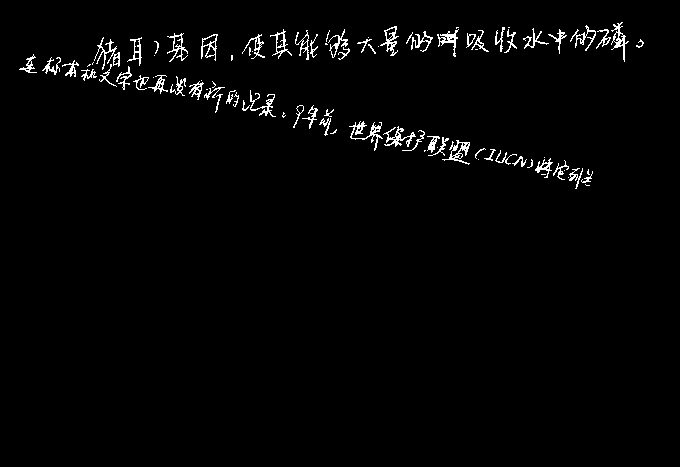 猪耳）基因，使其能够大量的吸收水中的磷。
连标本和文字也再没有新的记录。9年前，世界保护联盟（IUCN）将它列为